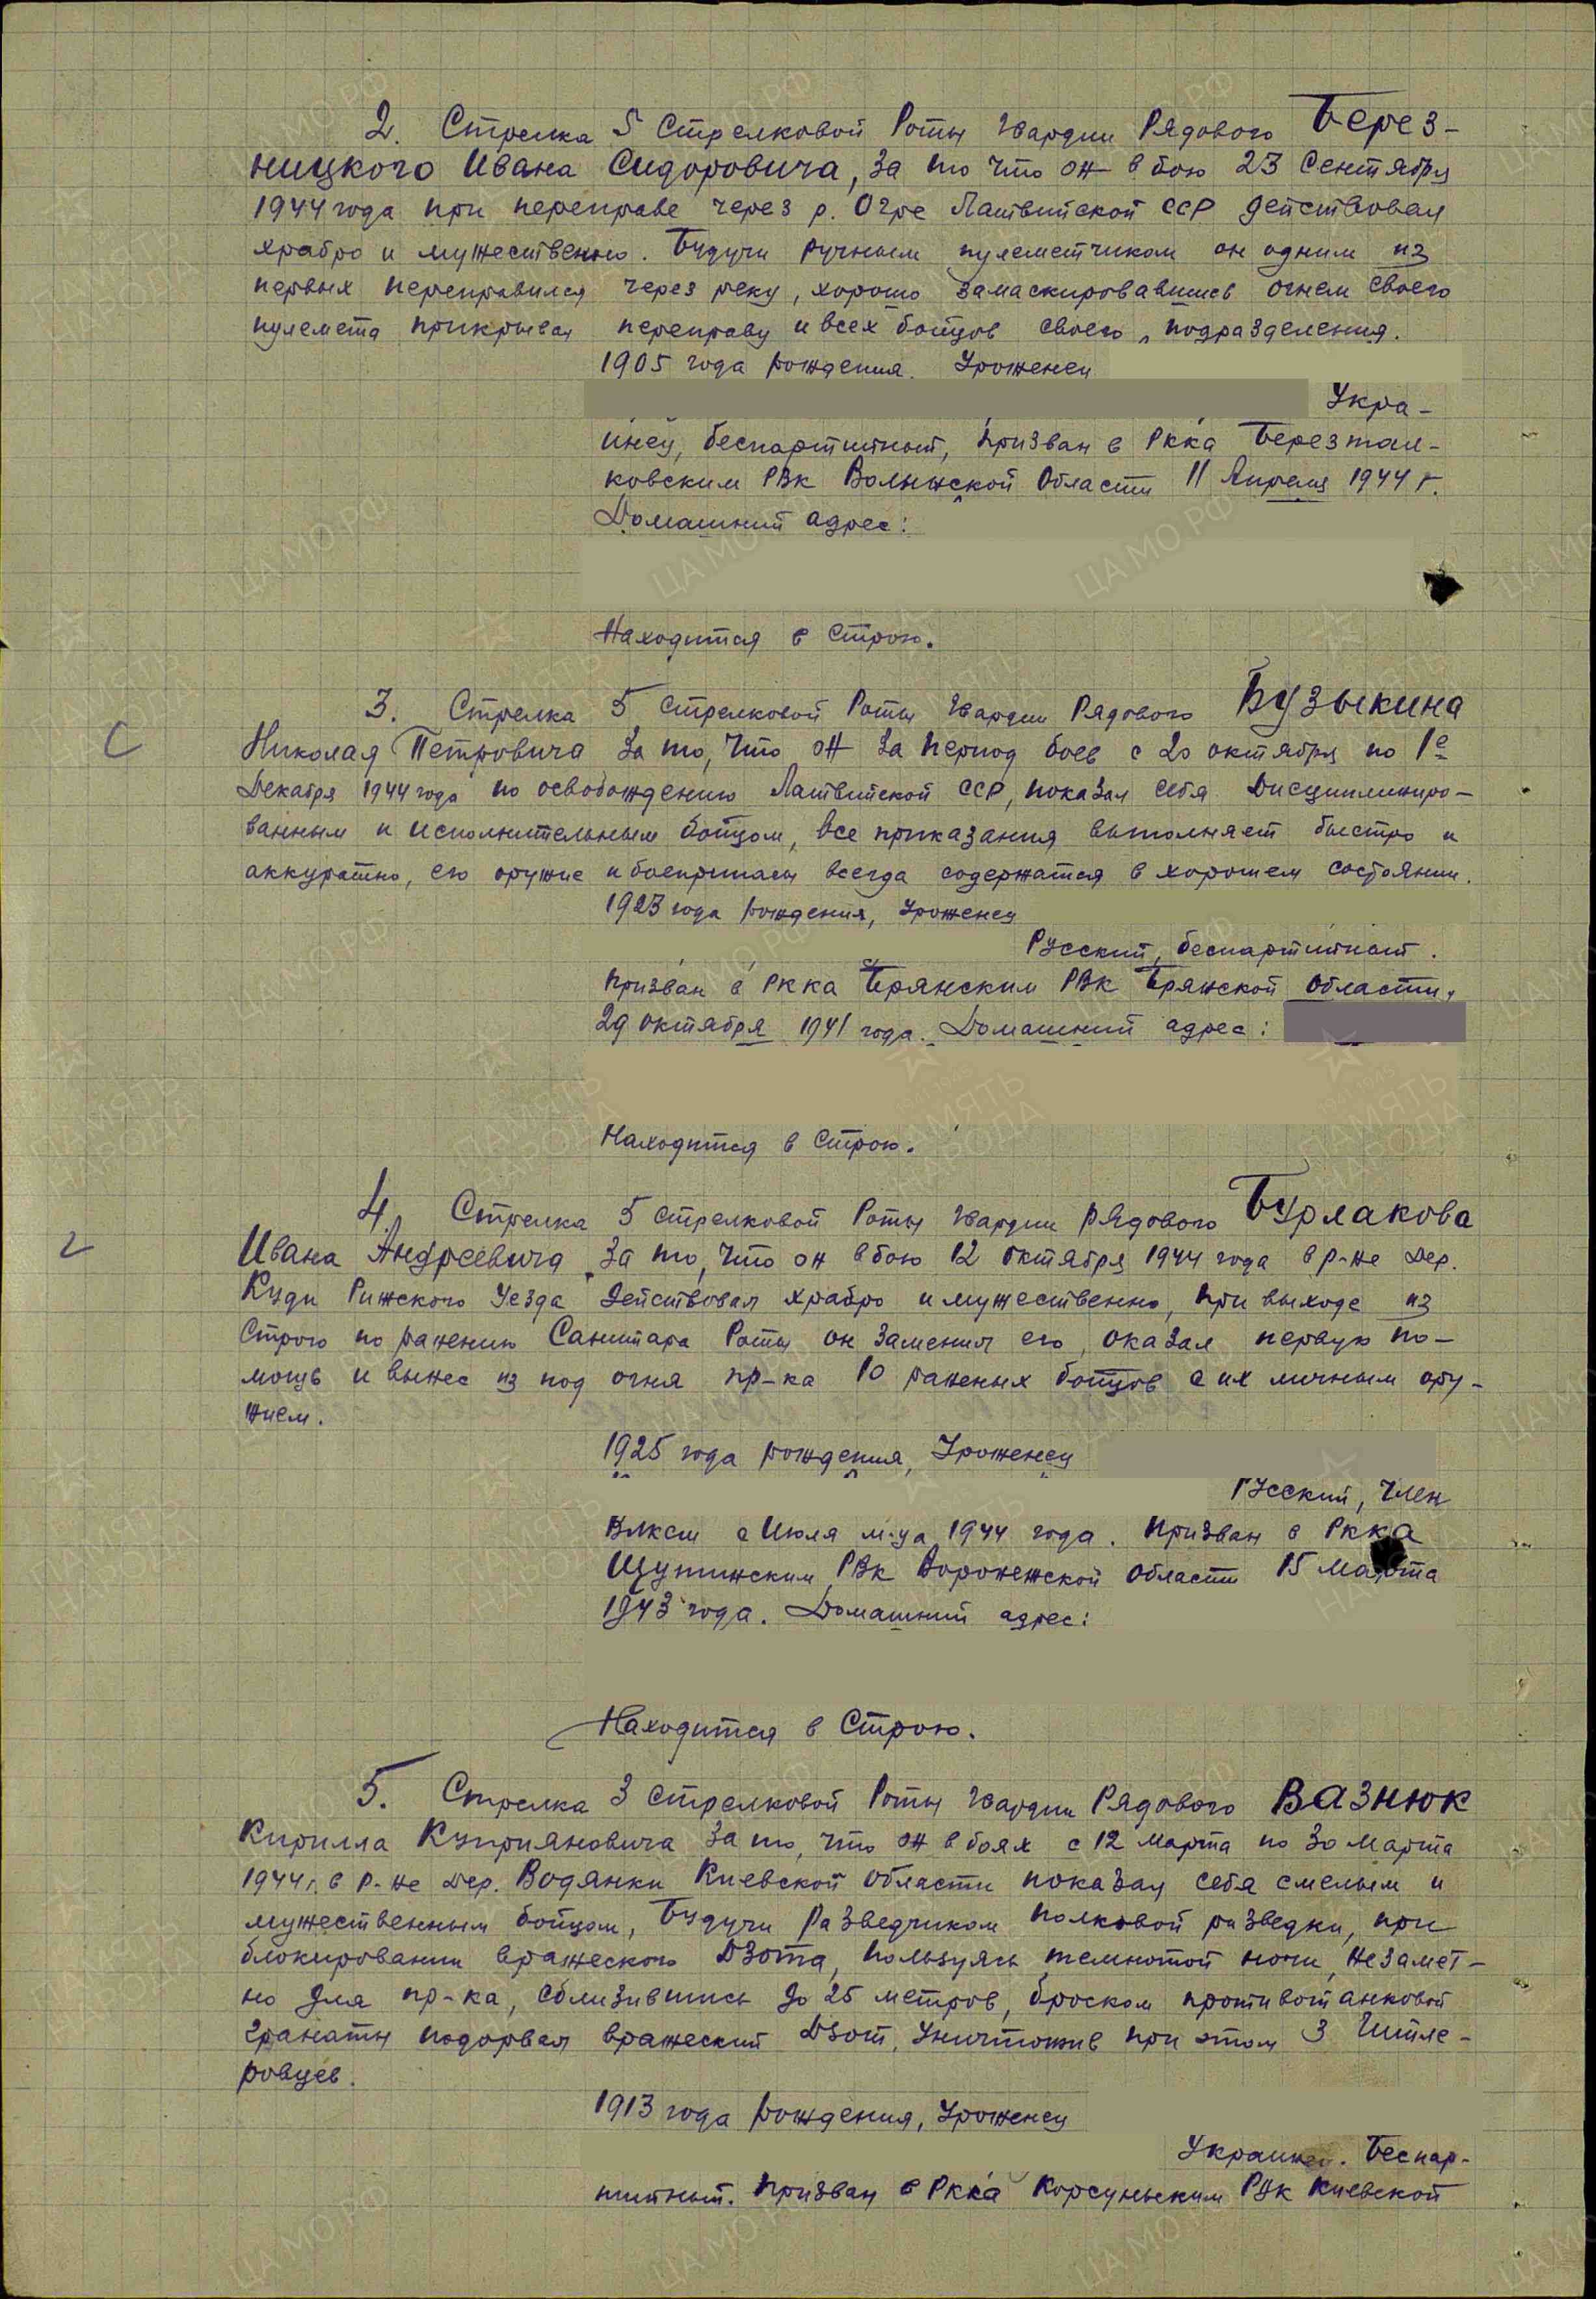 2. Стрелка 5 Стрелковой Роты Гвардии Рядового Берез-
ницкого Ивана Сидоровича, за то что он в бою 23 Сентября
1944 года при переправе через р. Огре Латвийской ССР действовал
храбро и мужественно. Будучи ручным пулеметчиком он одним из
первых переправился через реку, хорошо замаскировавшись огнем своего
пулемета прикрывал переправу и всех бойцов своего подразделения.
1905 года рождения. Уроженец
Укра-
инец, беспартийный, призван в РККА Березтал-
ковским РВК Волынской Области 11 Апреля 1944 г.
Домашний адрес:
Находится в Строю.
3. Стрелка 5 Стрелковой Роты Гвардии Рядового Бузыкина
Николая Петровича за то, что он за период боев с 20 октября по 1е
Декабря 1944 года по освобождению Латвийской ССР, показал себя Дисциплиниро-
ванным и исполнительным бойцом, все приказания выполняет быстро и
аккуратно, его оружие и боеприпасы всегда содержатся в хорошем состоянии.
1923 года рождения, Уроженец
Русский, беспартийный.
призван в РККА Брянским РВК Брянской Области,
29 октября 1941 года. Домашний адрес:
Находится в Строю.
4. Стрелка 5 стрелковой Роты Гвардии рядового Бурлакова
Ивана Андреевича за то, что он в бою 12 октября 1944 года в р-не Дер.
Куди Рижского Уезда Действовал храбро и мужественно, при выходе из
Строго по ранению Санитара Роты он заменил его, оказал первую по-
мощь и вынес из под огня пр-ка 10 раненых бойцов с их личным ору-
жием.
1925 года рождения, Уроженец
Русский, Член
ВЛКСМ с Июля м-ца 1944 года. Призван в РККА
Щучинским РВК Воронежской области 15 Марта
1943 года. Домашний адрес:
Находится в Строю.
5. Стрелка 3 стрелковой Роты Гвардии Рядового Вазнюк
Кирилла Куприяновича за то, что он в боях с 12 марта по 30 марта
1944 г. в р-не Дер. Водянки Киевской области показал себя смелым и
мужественным бойцом, Будучи разведчиком полковой разведки, при
блокировании вражеского ДЗОТа, пользуясь темнотой ночи, незамет-
но для пр-ка, сблизившись до 25 метров, броском противотанковой
гранаты подорвал вражеский ДЗот, уничтожив при этом 3 Гитле-
ровцев.
1913 года рождения, Уроженец
Украинец. Беспар-
тийный. призван в РККА Корсуньским РВК Киевской